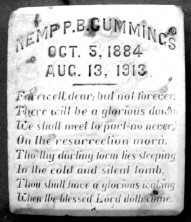 KEMP P. B. CUMMINGS
OCT. 5, 1884
AUG. 13, 1913
Farewell, dear, but not forever,
There will be a glorious dawn
We shall meet to part, no never,
On the resurrection morn.
Tho thy darling form lies sleeping
In the cold and silent tomb,
Thou shalt have a glorious waking
When the blessed Lord doth come.